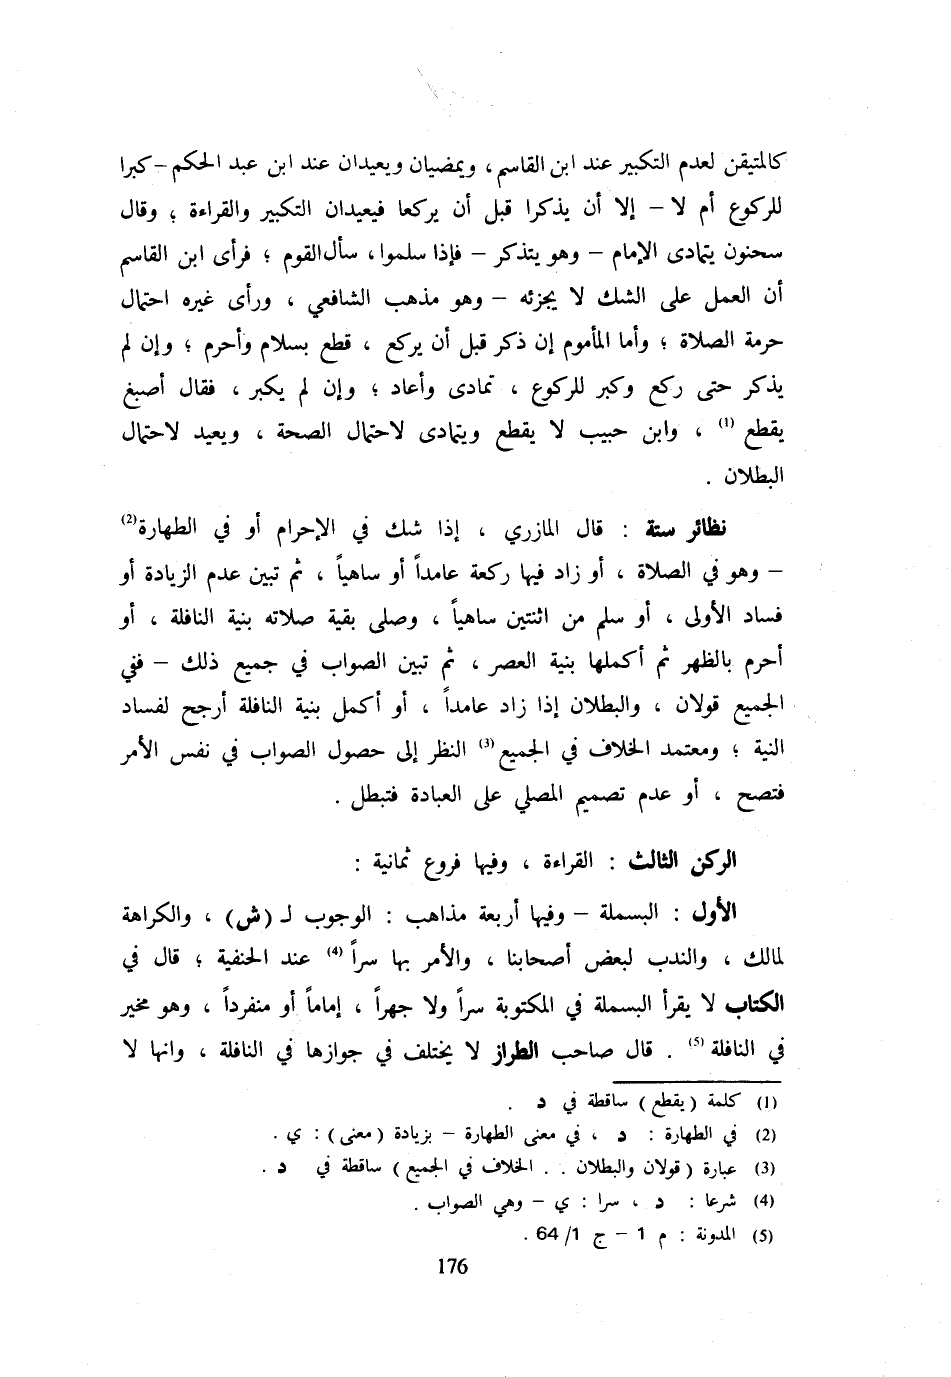 كالمتيقن لعدم التكبير عند ابن القاسم ، ويمضيان ويعيدان عند ابن عبد الحكم – كبرا
للركوع أم لا – إلا أن يذكرا قبل أن يركعا فيعيدان التكبير والقراءة ؛ وقال
سحنون يتمادى الإمام – وهو يتذكر – فإذا سلموا ، سأل القوم ؛ فرأى ابن القاسم
أن العمل على الشك لا يجزئه – وهو مذهب الشافعي ، ورأى غيره احتمال
حرمة الصلاة ؛ وأما المأموم إن ذكر قبل أن يركع ، قطع بسلام وأحرم ؛ وإن لم
يذكر حتى ركع وكبر للركوع ، تمادى وأعاد ؛ وإن لم يكبر ، فقال أصبغ
يقطع (1) ، وابن حبيب لا يقطع ويتمادى لاحتمال الصحة ، ويعيد لاحتمال
البطلان .
نظائر ستة : قال المازري ، إذا شك في الإحرام أو في الطهارة (2)
– وهو في الصلاة ، أو زاد فيها ركعة عامداً أو ساهياً ، ثم تبين عدم الزيادة أو
فساد الأولى ، أو سلم من اثنتين ساهياً ، وصلى بقية صلاته بنية النافلة ، أو
أحرم بالظهر ثم أكملها بنية العصر ، ثم تبين الصواب في جميع ذلك – ففي
الجميع قولان ، والبطلان إذا زاد عامداً ، أو أكمل بنية النافلة أرجح لفساد
النية ؛ ومعتمد الخلاف في الجميع (3) النظر إلى حصول الصواب في نفس الأمر
فتصح ، أو عدم تصميم المصلي على العبادة فتبطل .
الركن الثالث : القراءة ، وفيها فروع ثمانية :
الأول : البسملة – وفيها أربعة مذاهب : الوجوب لـ (ش) ، والكراهة
لمالك ، والندب لبعض أصحابنا ، والأمر بها سراً (4) عند الحنفية ؛ قال في
الكتاب لا يقرأ البسملة في المكتوبة سراً ولا جهراً ، إماماً أو منفرداً ، وهو مخير
في النافلة (5) . قال صاحب الطراز لا يختلف في جوازها في النافلة ، وانها لا
(1) كلمة ( يقطع ) ساقطة في د .
(2) في الطهارة : د ، في معنى الطهارة – بزيادة ( معنى ) : ي .
(3) عبارة ( قولان والبطلان . . الخلاف في الجميع ) ساقطة في د .
(4) شرعا : د ، سرا : ي – وهي الصواب .
(5) المدونة : م 1 – ج 1/ 64 .
176